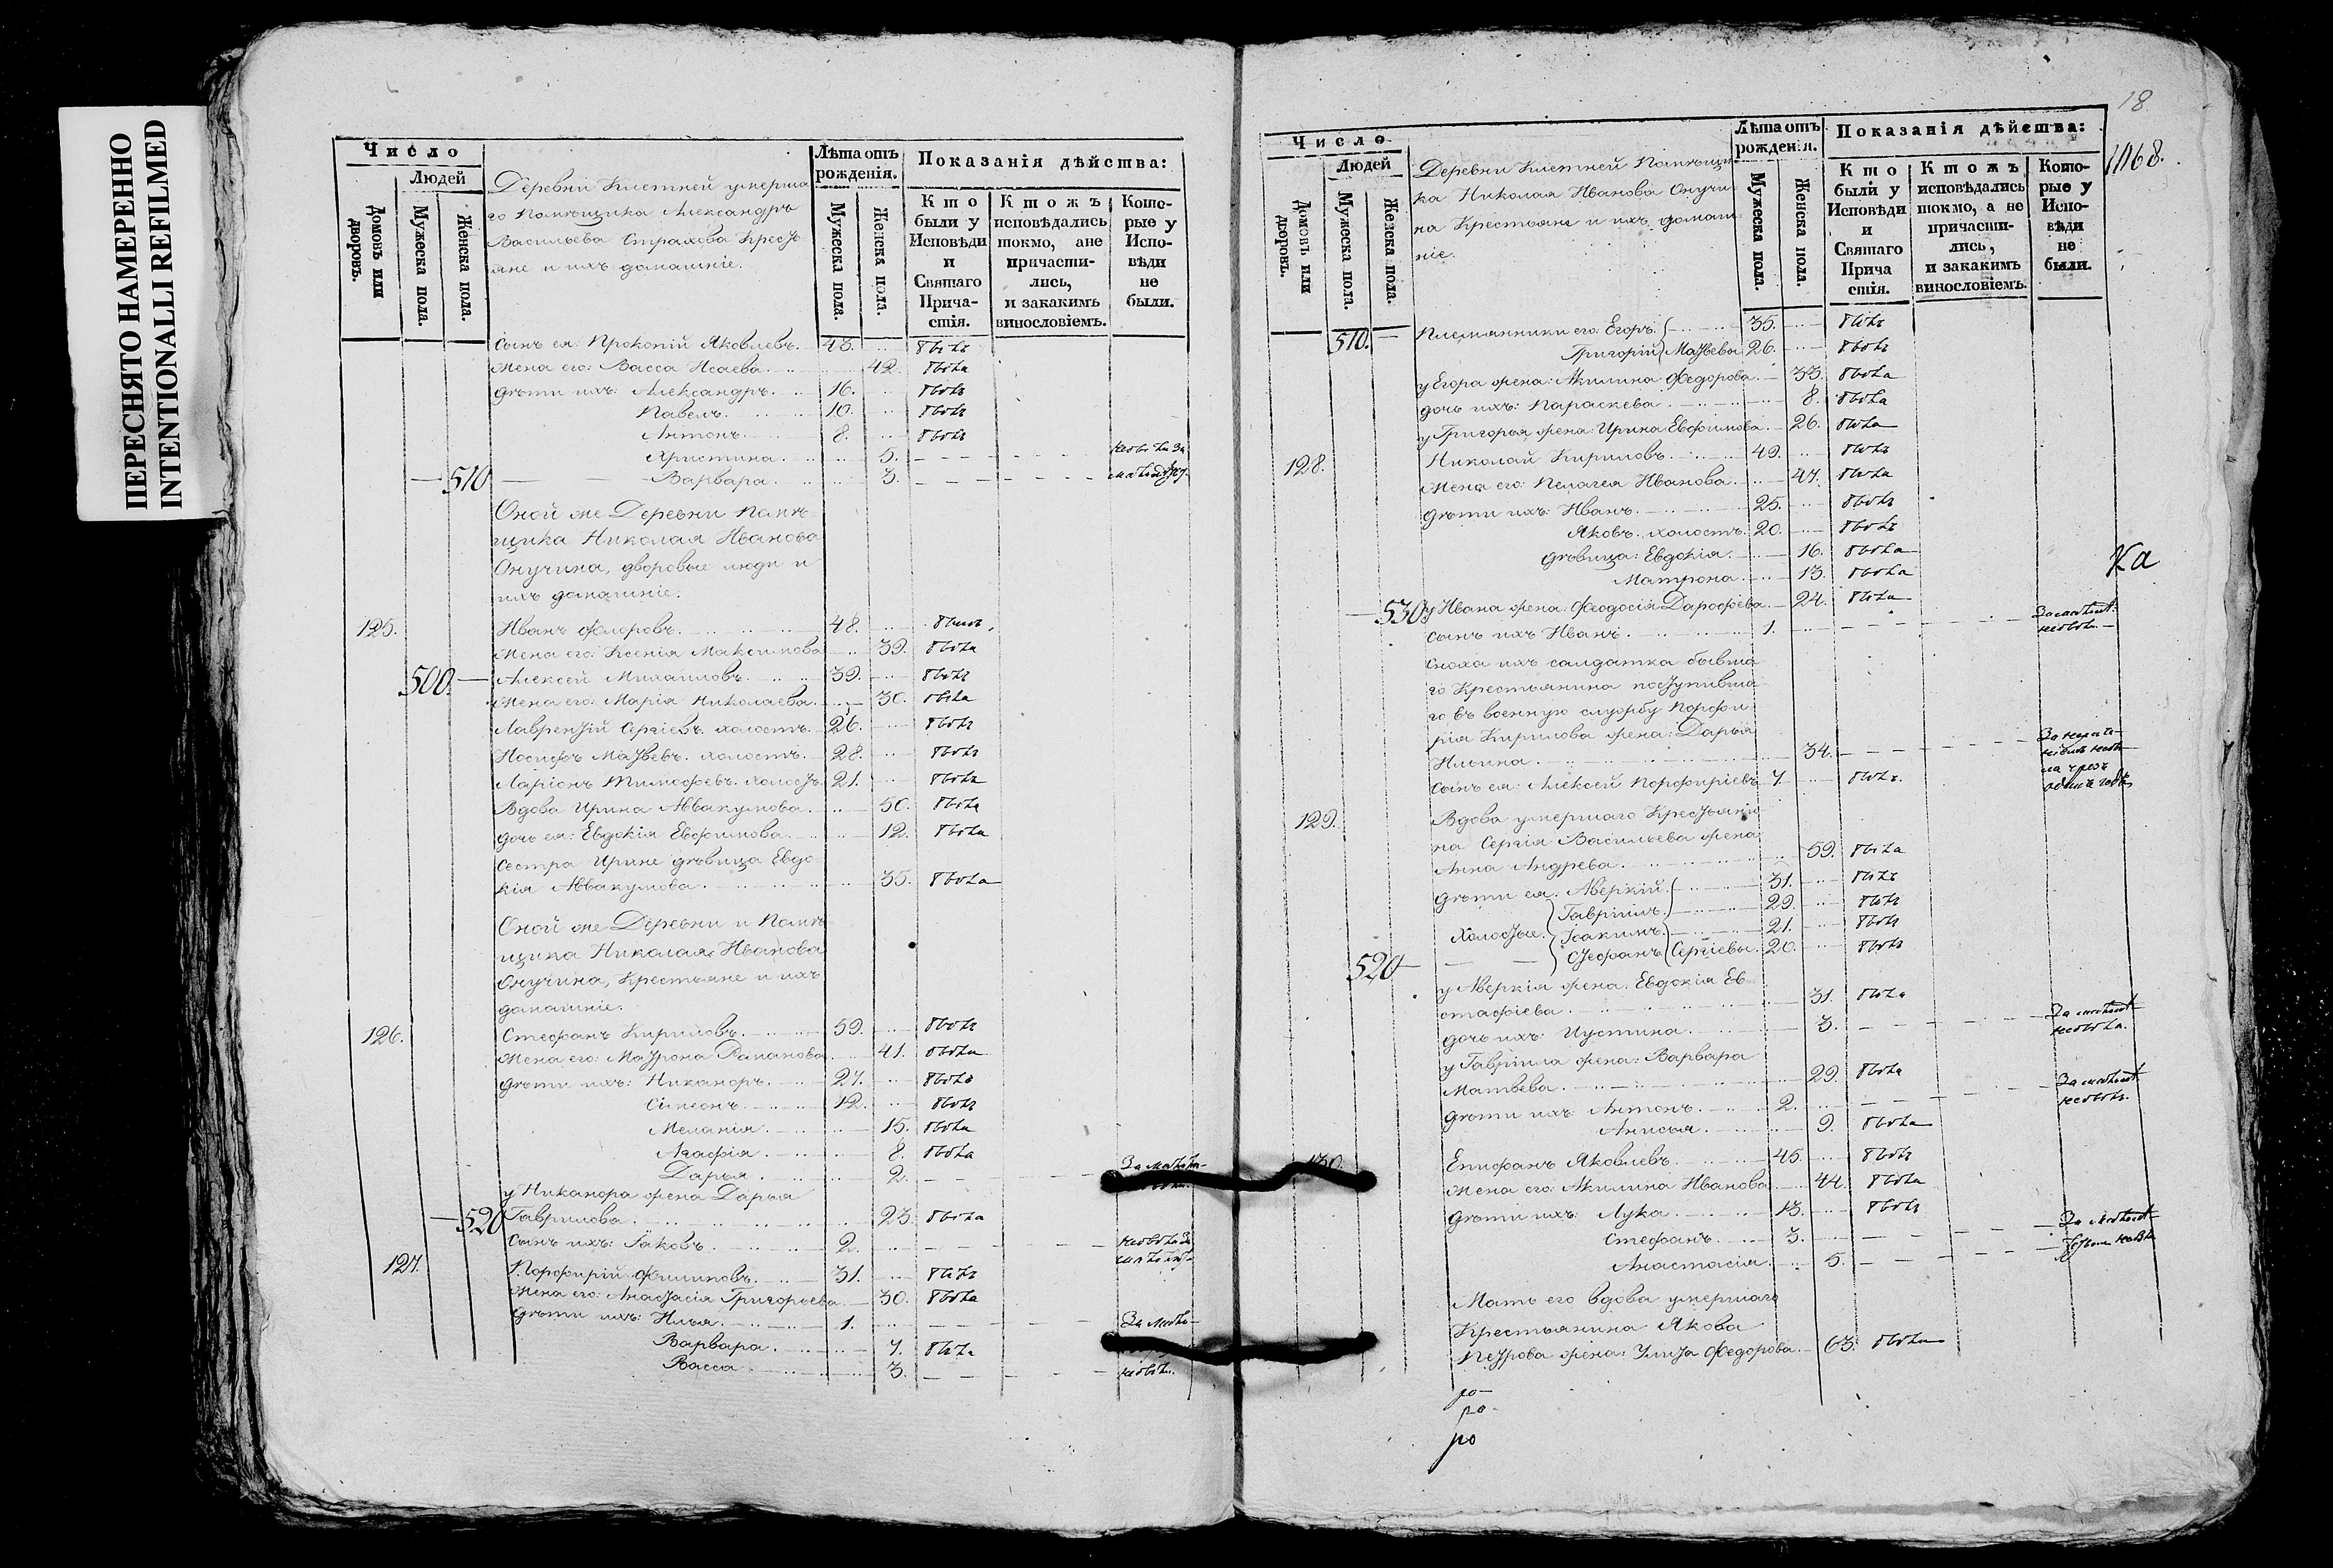 ПЕРЕСНЯТО НАМЕРЕННО
INTENTIONALLI REFILMED
Число
Людей
Домовъ или дворовъ.
Мужеска пола.
Женска пола.
Деревни Клетней умерша
го Помѣщика Александръ
Васильева Страхова Крестья
яне и ихъ домашніе.
Лѣта отъ рожденія.
Мужеска пола.
Женска пола.
Показанія дѣйства:
Кто были у Исповѣди и Святаго Прича-стія.
Ктожъ исповѣдались токмо, а не причасти-лись, и закакимъ винословіемъ.
Кото-рые у Испо-вѣди не были.
Сынъ ея: Прокопій Яковлевъ. 43. былъ
Жена его: Васса Исаева. 42. была
Дѣти ихъ: Александръ. 16. былъ
Павелъ. 10. былъ
Антонъ. 8. былъ
Христина. 5.
510 Варвара. 3.
Оной же Деревни Помѣ
щика Николая Иванова
Онучина, дворовые люди и
ихъ домашніе.
125. Иванъ Флоровъ. 48. былъ
Жена его: Ксенія Максимова 39. была
500. Алексей Михаиловъ. 39. былъ
Жена его: Марія Николаева. 30. была
Лаврентій Сергіевъ. холостъ. 26. былъ
Іосифъ Матвевъ. холостъ. 28. былъ
Ларіонъ Тимофеевъ. холостъ 21. была
Вдова Ирина Аввакумова. 50. была
дочь ея: Евдокія Евфимова. 12. была
Сестра Ирине дѣвица Евдо
кія Аввакумова. 35. была
Оной же Деревни и Помѣ
щика Николая Иванова
Онучина, Крестьяне и ихъ
домашніе.
126. Стефанъ Кириловъ. 59. былъ
Жена его: Матрона Романова 41. была
Дѣти ихъ: Никаноръ. 27. былъ
Сімеонъ. 12. былъ
Меланія. 15. была
Агафія. 8. была
Дарья. 2.
у Никанора жена Дарья
520 Гаврилова. 23. была
Сынъ ихъ: Іаковъ. 2.
127. Порфирій Филиповъ. 31. былъ
Жена его: Анастасія Григорьева 30. была
Дѣти ихъ: Илья. 1.
Варвара. 7. была
Васса. 3.
18
1168.
Число
Людей
Домовъ или дворовъ.
Мужеска пола.
Женска пола.
Деревни Клетней Помѣщи
ка Николая Иванова Онучи
на Крестьяне и ихъ домаш
ніе.
Лѣта отъ рожденія.
Мужеска пола.
Женска пола.
Показанія дѣйства:
Кто были у Исповѣди и Святаго Прича стія.
Ктожъ исповѣдались токмо, а не причасти-лись, и закакимъ винословіемъ.
Кото-рые у Испо-вѣди не были.
510. Племянники его: Егоръ. 35. былъ
Григорій Матвевы 26. былъ
у Егора жена: Акилина Федорова. 33. была
дочь ихъ: Параскева. 8. была
у Григорья жена: Ирина Евфимова. 26. была
128. Николай Кириловъ. 49. былъ
Жена его: Пелагея Иванова. 47. была
Дѣти ихъ: Иванъ. 25. былъ
Яковъ. холостъ. 20. былъ
дѣвица: Евдокія. 16. была
Матрона. 13. была
Ка
530 у Ивана жена: Феодосія Дарофеева. 24. была
Сынъ ихъ Иванъ. 1.
Сноха ихъ салдатка бывша
го Крестьянина поступивша
го въ военную службу Порфи
рія Кирилова жена: Дарья
Ильина. 34.
Сынъ ея: Алексей Порфиріевъ 7. былъ.
129. Вдова умершаго Крестьяни
на Сергія Васильева жена
Анна Андрева. 59. была
Дѣти ея: Аверкій. 31. былъ
Гавріилъ. 29. былъ
Холостые. Іоакимъ. 21. былъ
520 Стефанъ Сергіевы. 20. былъ
у Аверкія жена: Евдокія Ев
стафіева. 31. была
дочь ихъ: Иустина. 3.
у Гавріила жена: Варвара
Матвева. 29. была
Дѣти ихъ: Антонъ. 2.
Анисья. 9. была
130. Епифанъ Яковлевъ. 45. былъ
Жена его: Акилина Иванова 44. была
Дѣти ихъ: Лука. 13. былъ
Стефанъ. 3.
Анастасія. 5.
Мать его вдова умершаго
Крестьянина Якова
Петрова жена: Улита Федорова. 63. была
ро
ро
ро